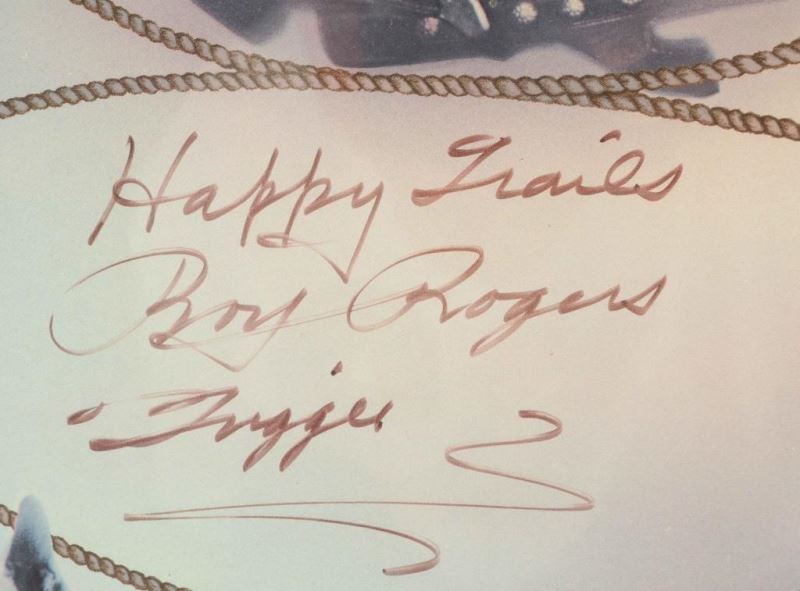 Happy Trails
Roy Rogers
& Trigger